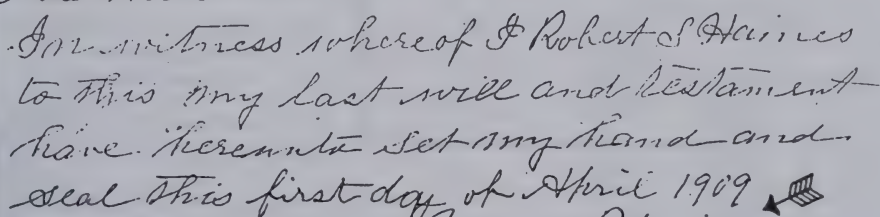 In witness whereof I Robert S Haines
to this my last will and testament
have hereunto set my hand and
seal this first day of April 1909